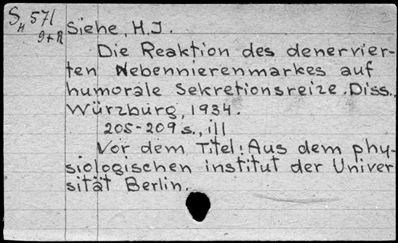 S_H 571
9+R
Siehe, H.J.
Die Reaktion des denervier-
ten Nebennierenmarkes auf
humorale Sekretionsreize. Diss.,
Würzburg, 1934.
205-209 s., ill
Vor dem Titel: Aus dem phy-
siologischen institut der Univer
sität Berlin.